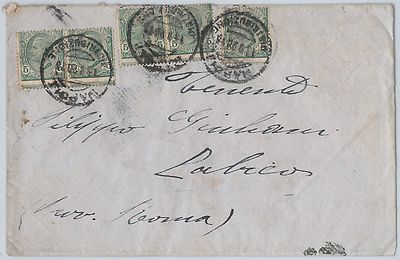 Tenente
Filippo Giuliani
Labico
(Prov. Roma)